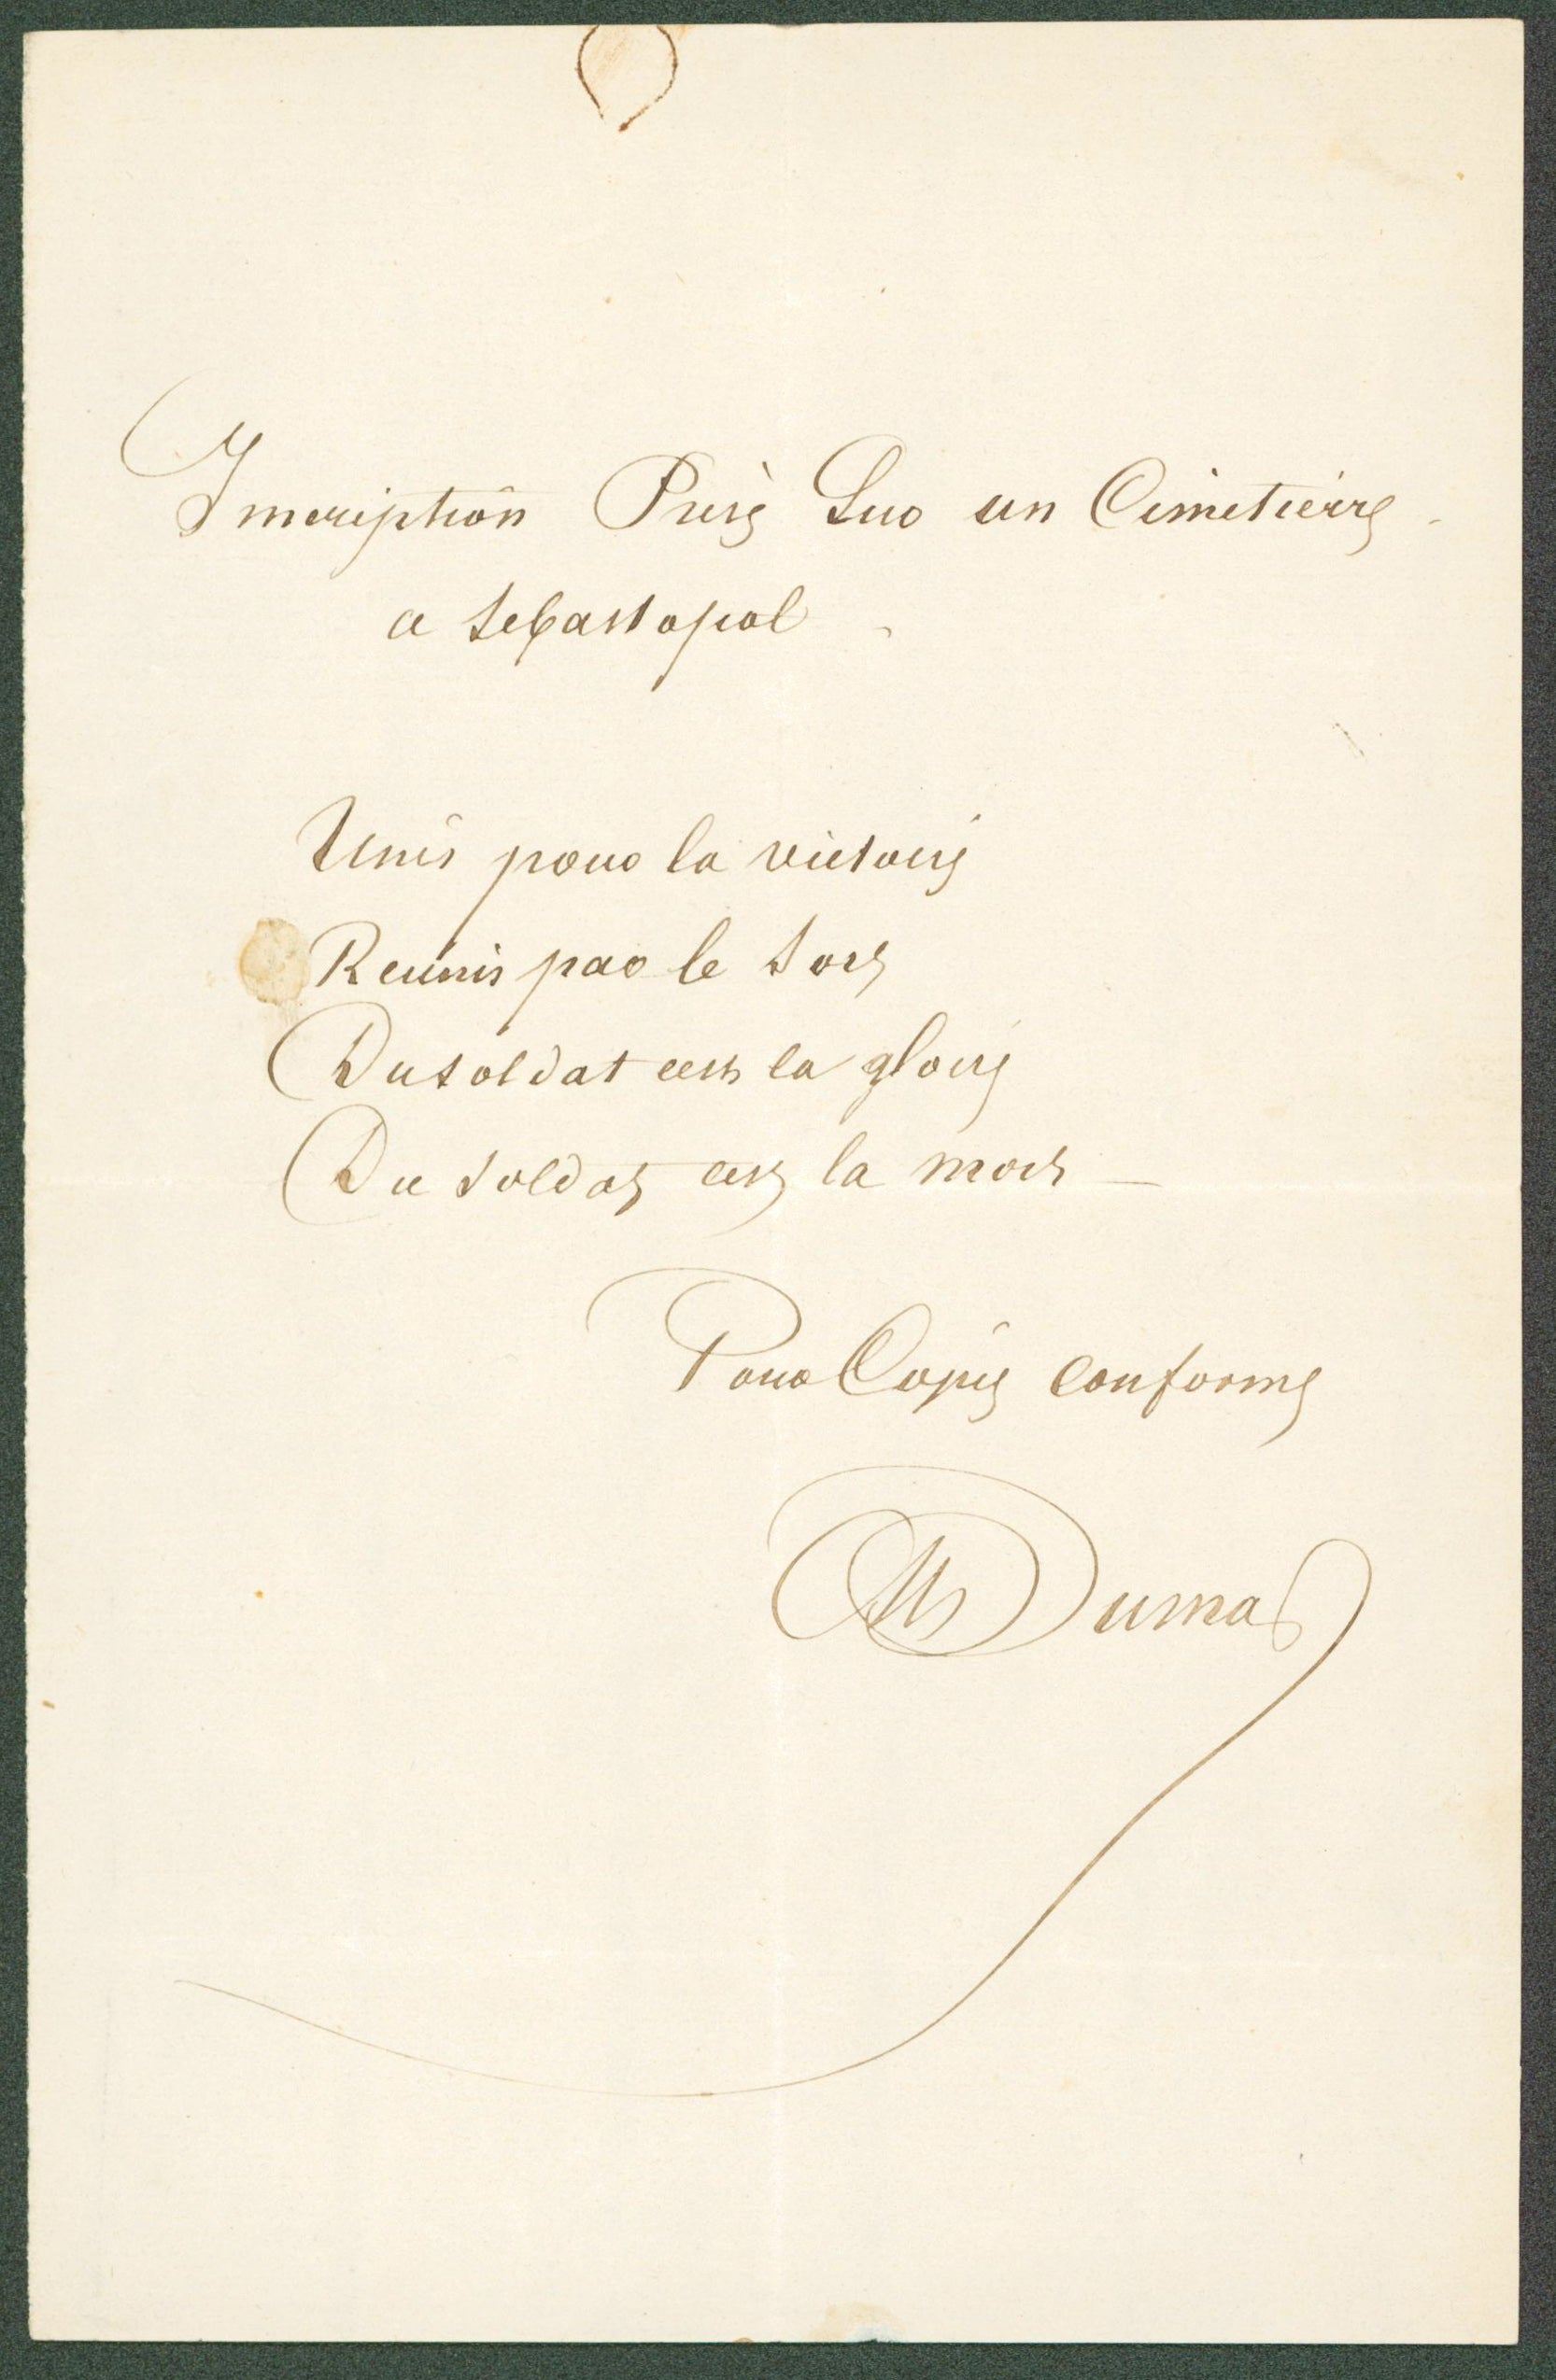 Inscription Prise Sur un Cimetierre
a Sebastopol
Unis pour la victoire
Reunis par le sort
Du soldat cest la gloire
Du soldat cest la mort
Pour Copie conforme
Dumas